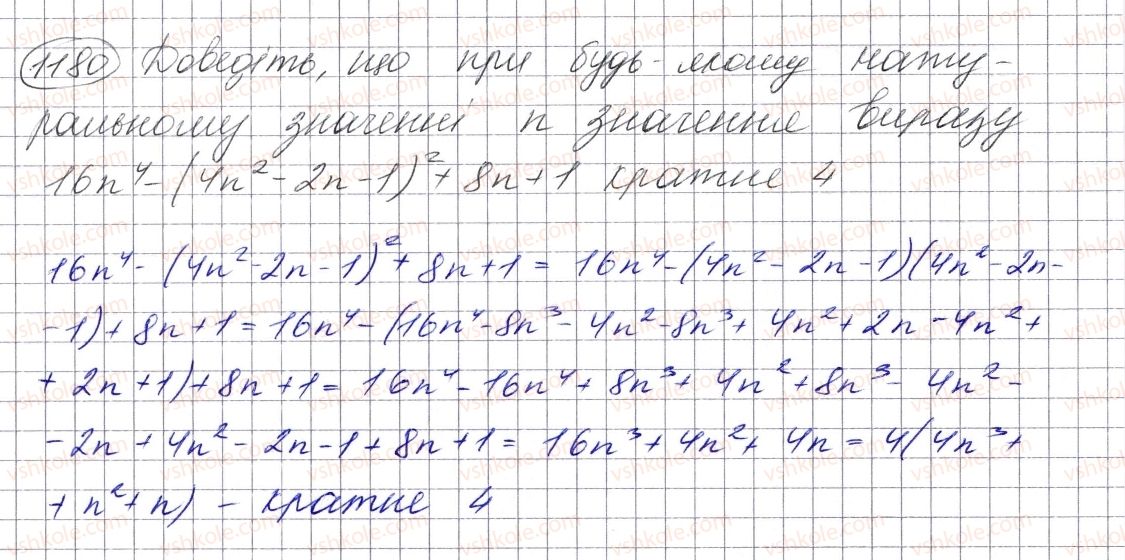 1180 Доведіть, що при будь-якому нату-
ральному значенні n значення виразу
16n⁴ - (4n² - 2n - 1)² + 8n + 1 кратне 4
16n⁴ - (4n² - 2n - 1)² + 8n + 1 = 16n⁴ - (4n² - 2n - 1)(4n² - 2n -
- 1) + 8n + 1 = 16n⁴ - (16n⁴ - 8n³ - 4n² - 8n³ + 4n² + 2n - 4n² +
+ 2n + 1) + 8n + 1 = 16n⁴ - 16n⁴ + 8n³ + 4n² + 8n³ - 4n² -
- 2n + 4n² - 2n - 1 + 8n + 1 = 16n³ + 4n² + 4n = 4(4n³ +
+ n² + n) - кратне 4